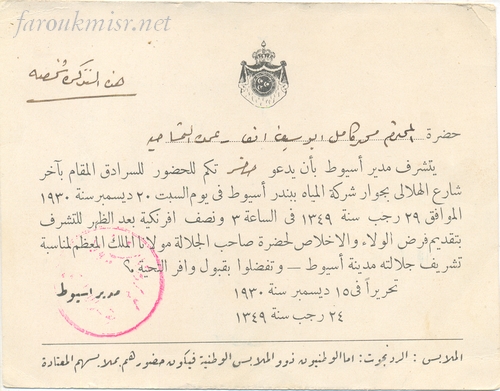 faroukmisr.net
هذه التذكرة شخصية
حضرة المحترم محمد كامل ابو سيف افندى عمدة
يتشرف مدير أسيوط بأن يدعو حضر تكم للحضور للسرادق المقام بآخر
شارع الهلالى بجوار شركة المياه ببندر أسيوط فى يوم السبت ٢٠ ديسمبر سنة ١٩٣٠
الموافق ٢٩ رجب سنة ١٣٤٩ فى الساعة ٣ ونصف افرنكية بعد الظهر للتشرف
بتقديم فرض الولاء والاخلاص لحضرة صاحب الجلالة مولانا الملك المعظم لمناسبة
تشريف جلالته مدينة أسيوط — وتفضلوا بقبول وافر التحية ؟
تحريراً فى ١٥ ديسمبر سنة ١٩٣٠
مدير أسيوط
٢٤ رجب سنة ١٣٤٩
الملابس : الردنجوت : اما الوطنيون ذوو الملابس الوطنية فيكون حضورهم بملابسهم المعتادة